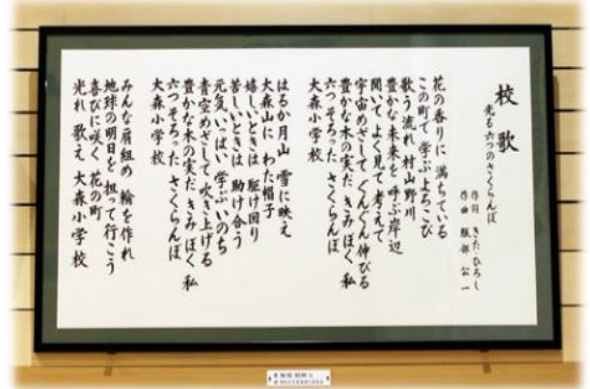 校歌
光る六つのさくらんぼ
作詞 きたひろし
作曲 服部公一
花の香りに 満ちている
この町で 学ぶよろこび
歌う流れ 村山野川
豊かな未来を 呼ぶ岸辺
聞いて よく見て 考えて
宇宙めざして ぐんぐん伸びる
豊かな木の実だ きみ ぼく 私
六つそろった さくらんぼ
大森小学校
はるか月山 雪に映え
大森山に わた帽子
嬉しいときは 駆け回り
苦しいときは 助け合う
元気いっぱい 学ぶいのち
青空めざして 吹き上げる
豊かな木の実だ きみ ぼく 私
六つそろった さくらんぼ
大森小学校
みんな肩組め 輪を作れ
地球の明日を 担って行こう
喜びに咲く 花の町
光れ 歌え 大森小学校